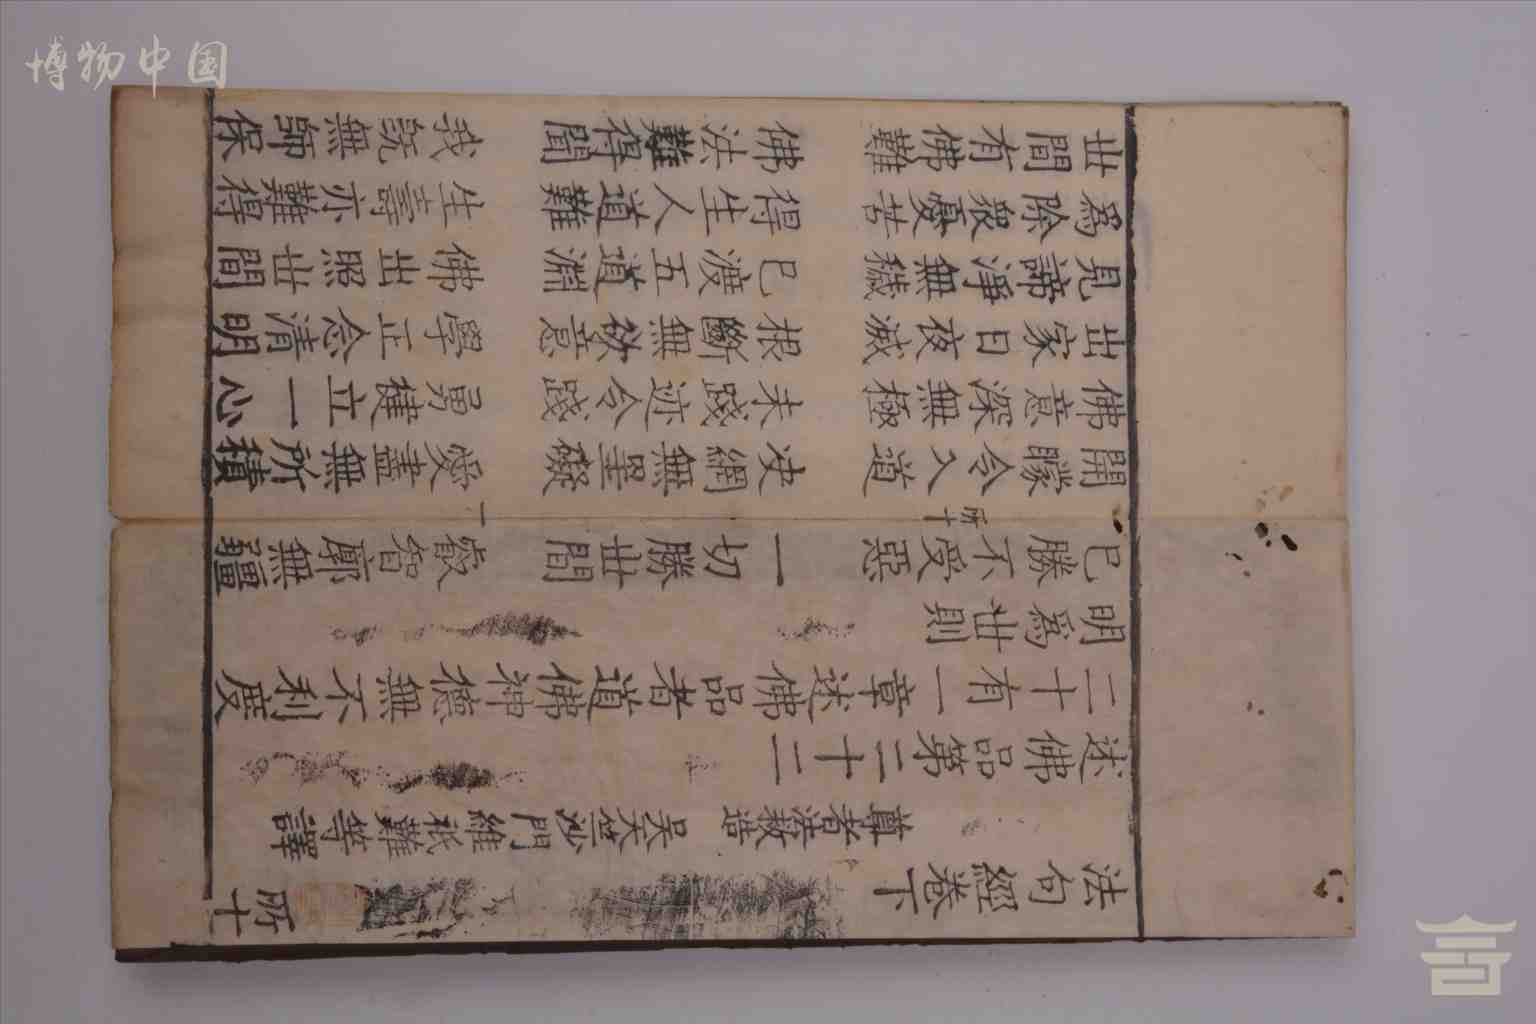 法句經卷下 所十
尊者法救造 吳天竺沙門維祇難等譯
述佛品第二十二
二十有一章述佛品者道佛神德無不利度
明爲世則
已勝不受惡 一切勝世間 叡智廓無疆
所十 一
開矇令入道 决網無罣礙 愛盡無所積
佛意深無極 未踐迹令踐 勇健立一心
出家日夜滅 根斷無欲意 學正念清明
見諦淨無穢 已渡五道淵 佛出照世間
爲除衆憂苦 得生人道難 生壽亦難得
世間有佛難 佛法難得聞 我旣無師保
博物中国